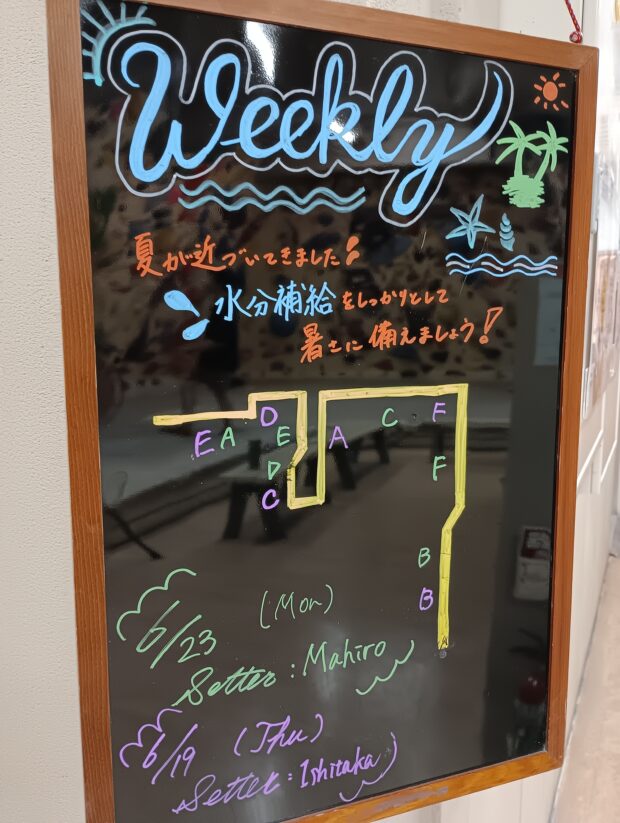 Weekly
夏が近づいてきました!
水分補給をしっかりとして
暑さに備えましょう!
D
E A E A C F
D F
C
B
B
6/23 (Mon)
Setter : Mahiro
6/19 (Thu)
Setter : Ishitaka